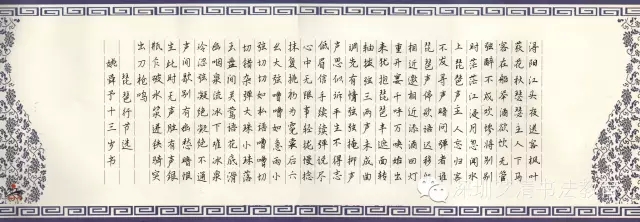 浔阳江头夜送客枫叶
荻花秋瑟瑟主人下马
客在船举酒欲饮无管
弦醉不成欢惨将别别
时茫茫江浸月忽闻水
上琵琶声主人忘归客
不发寻声暗问弹者谁
琵琶声停欲语迟移船
相近邀相见添酒回灯
重开宴千呼万唤始出
来犹抱琵琶半遮面转
轴拨弦三两声未成曲
调先有情弦弦掩抑声
声思似诉平生不得志
低眉信手续续弹说尽
心中无限事轻拢慢捻
抹复挑初为霓裳后六
幺大弦嘈嘈如急雨小
弦切切如私语嘈嘈切
切错杂弹大珠小珠落
玉盘间关莺语花底滑
幽咽泉流冰下难冰泉
冷涩弦凝绝凝绝不通
声间歇别有幽愁暗恨
生此时无声胜有声银
瓶乍破水浆迸铁骑突
出刀枪鸣
琵琶行节选
姚舜予十三岁书
书法教育